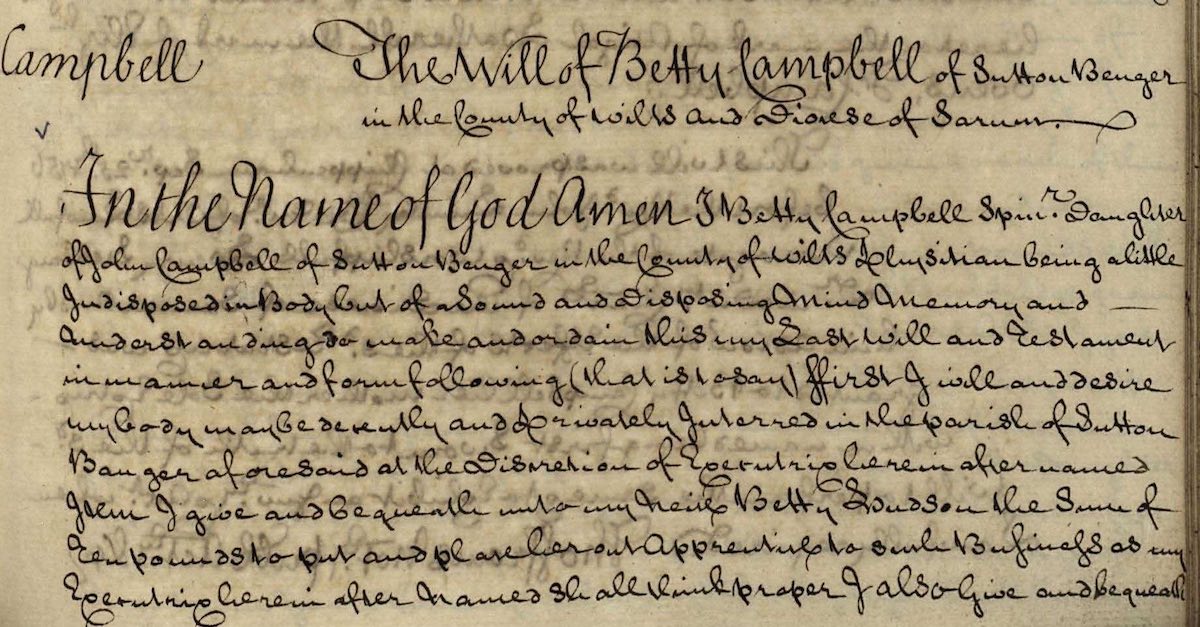 Campbell
The Will of Betty Campbell of Sutton Benger
in the County of Wilts and Diocese of Sarum.
In the Name of God Amen I Betty Campbell Spinr. Daughter
of John Campbell of Sutton Benger in the County of Wilts Physitian being a little
Indisposed in Body but of a Sound and Disposing Mind Memory and
Understanding do make and ordain this my Last Will and Testament
in manner and form following (that is to say) ffirst I will and desire
my body may be decently and Privately Interred in the parish of Sutton
Banger aforesaid at the Discretion of Executrix herein after named
Item I give and bequeath unto my Neice Betty the Sum of
Ten pounds to put and place her out Apprentice to such Business as my
Executrix herein after Named shall think proper I also Give and bequeath